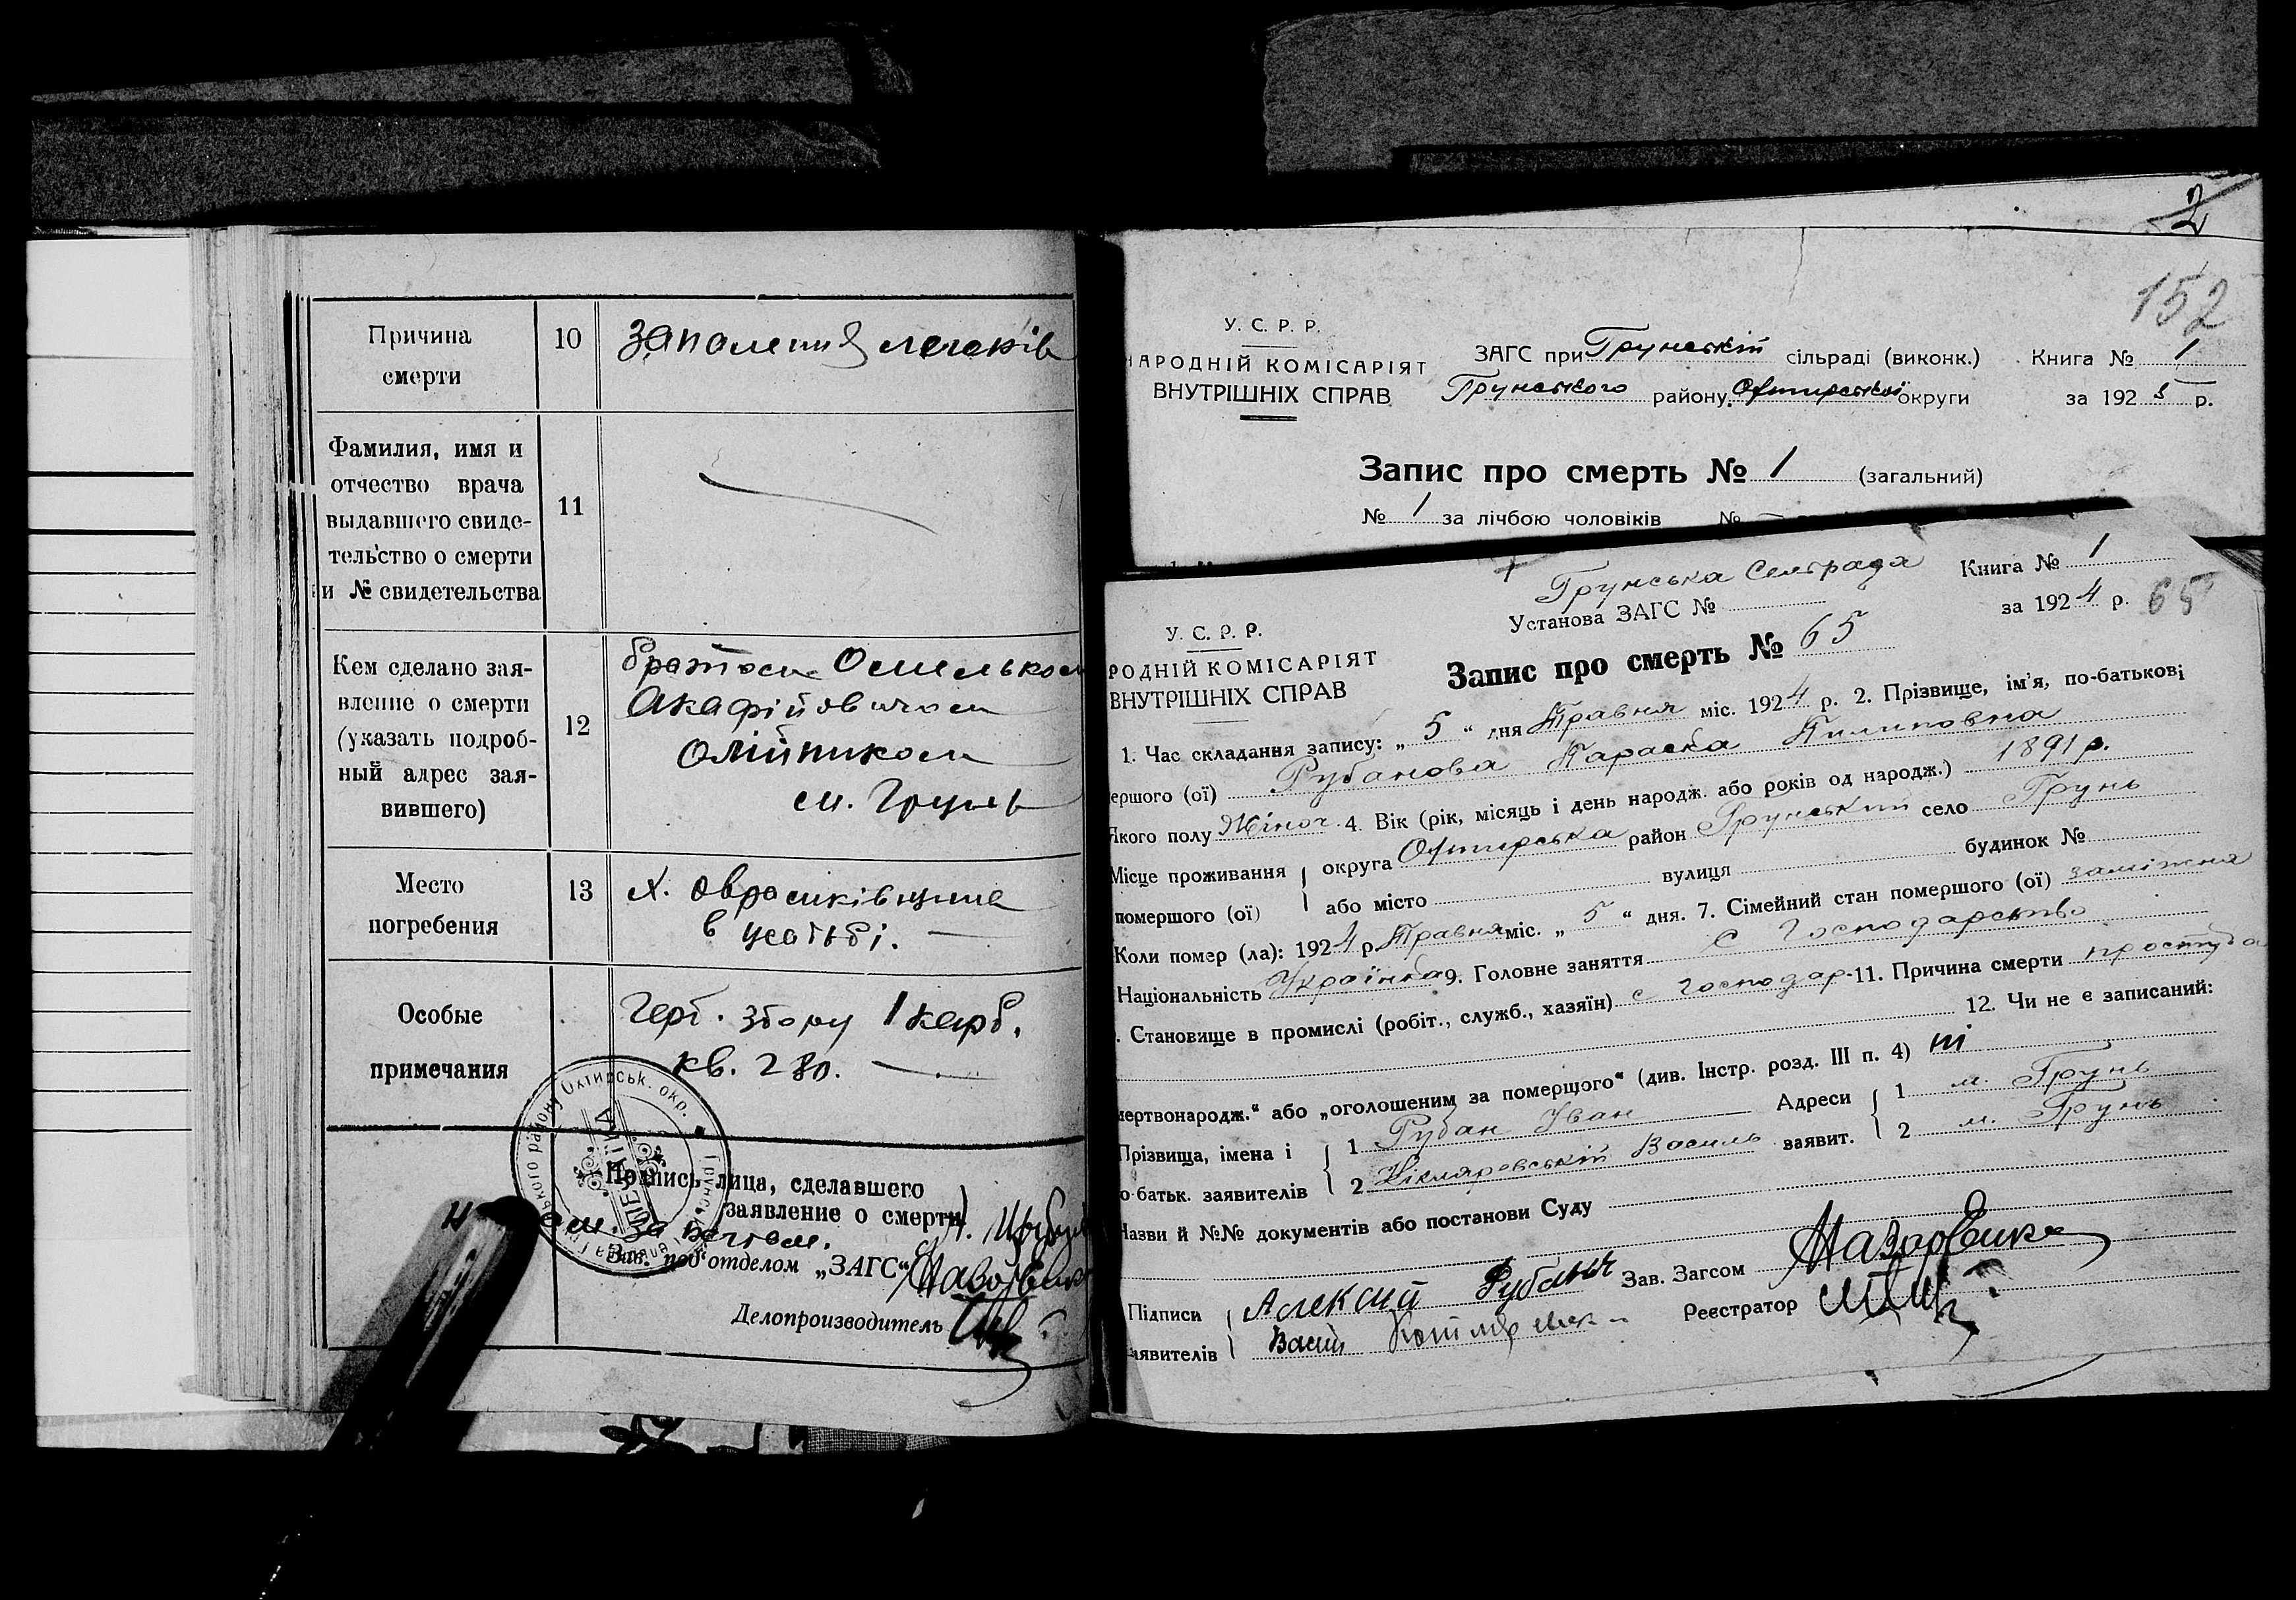 Причина
смерти
10
запаления легенів
Фамилия, имя и
отчество врача
выдавшего свиде-
тельство о смерти
и № свидетельства
11
Кем сделано зая-
вление о смерти
(указать подроб-
ный адрес зая-
вившего)
12
братом Омельком
Акафійовичом
Олійником
м. Грунь
Место
погребения
13
х.
в усатьбі.
Особые
примечания
Герб. збору 1 карб.
кв. 280.
Подпись лица, сделавшего
заявление о смерти
Зав. под'отделом „ЗАГС“
Делопроизводитель
2
152
У. С. Р. Р.
НАРОДНІЙ КОМІСАРІЯТ
ВНУТРІШНІХ СПРАВ
ЗАГС при Грунській сільраді (виконк.)
Грунського району, Охтирської округи
Книга № 1
за 1925 р.
Запис про смерть № 1 (загальний)
№ 1 за лічбою чоловіків №
Грунська Сельрада
Установа ЗАГС №
Книга № 1
за 1924 р. 65
У. С. Р. Р.
РОДНІЙ КОМІСАРІЯТ
ВНУТРІШНІХ СПРАВ
Запис про смерть № 65
1. Час складання запису: „ 5 “ дня Травня міс. 1924 р. 2. Прізвище, ім'я, по-батькові
ершого (ої) Рубанова Параска Пилиповна
Якого полу Жіноч. 4. Вік (рік, місяць і день народж. або років од народж.) 1891 р.
Місце проживання округа Охтирська район Грунський село Грунь
померщого (ої) або місто вулиця будинок №
Коли помер (ла): 1924 р. Травня міс. „ 5 “ дня. 7. Сімейний стан помершого (ої) заміжня
Національність Українка 9. Головне заняття С Господарство
. Становище в промислі (робіт., служб., хазяїн) с господар 11. Причина смерти простуда
12. Чи не є записаний:
мертвонародж.“ або „оголошеним за померщого“ (див. Інстр. розд. III п. 4) ні
Прізвища, імена і 1 Рубан Іван Адреси 1 м. Грунь
о-батьк. заявителів 2 Василь заявит. 2 м. Грунь
Назви й №№ документів або постанови Суду
Підписи Алексий Рубан Зав. Загсом
аявителів Реєстратор